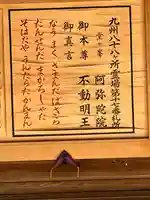 九州八十八ヶ所霊場第十壱番札所
堂ヶ峯 阿弥陀院
御本尊 不動明王
御真言
なうまくさまんだばさら
だんせんだまかろしゃだ
そはたやうんたらたかんまん